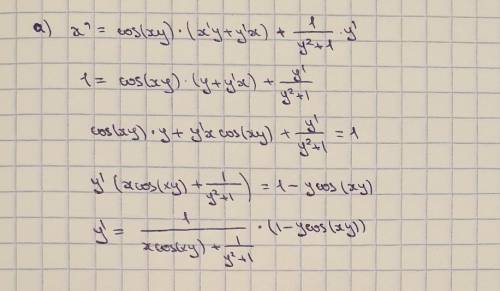 a) x' = cos(xy)·(x'y+y'x) + 1/(y²+1) · y'
1 = cos(xy)·(y+y'x) + y'/(y²+1)
cos(xy)·y + y'x cos(xy) + y'/(y²+1) = 1
y' (x cos(xy) + 1/(y²+1)) = 1 - y cos(xy)
y' = 1/(x cos(xy) + 1/(y²+1)) · (1 - y cos(xy))